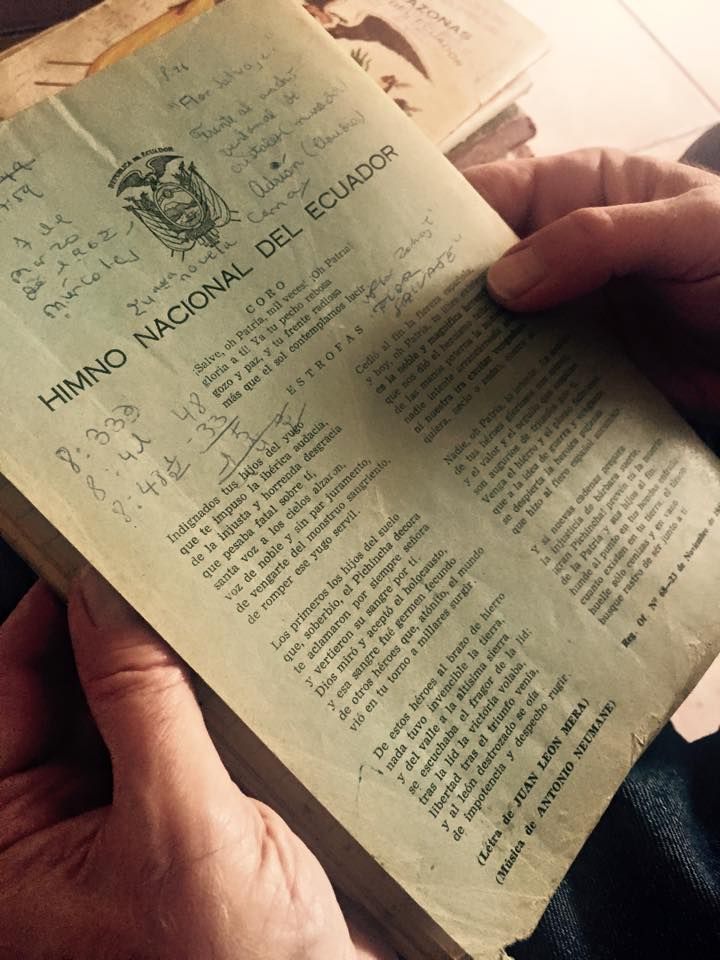 AZONAS
DEL ECUADOR
"Flor Salvaje"
Frente al
de
Adrián
7 de
marzo
de 1962,
miércoles
novela
REPUBLICA DEL ECUADOR
HIMNO NACIONAL DEL ECUADOR
"FLOR
SALVAJE"
8:33
8:41
8:48
48
-33
CORO
¡Salve, oh Patria, mil veces! ¡Oh Patria!
gloria a ti! Ya tu pecho rebosa
gozo y paz, y tu frente radiosa
más que el sol contemplamos lucir.
ESTROFAS
Indignados tus hijos del yugo
que te impuso la ibérica audacia,
de la injusta y horrenda desgracia
que pesaba fatal sobre ti,
santa voz a los cielos alzaron,
voz de noble y sin par juramento,
de vengarte del monstruo sangriento,
de romper ese yugo servil.
Los primeros los hijos del suelo
que, soberbio, el Pichincha decora
te aclamaron por siempre señora
y vertieron su sangre por ti.
Dios miró y aceptó el holocausto,
y esa sangre fué germen fecundo
de otros héroes que, atónito, el mundo
vió en tu torno a millares surgir.
De estos héroes al brazo de hierro
nada tuvo invencible la tierra,
y del valle a la altísima sierra,
se escuchaba el fragor de la lid:
tras la lid la victoria volaba,
libertad tras el triunfo venía,
y al león destrozado se oía
de impotencia y despecho rugir.
Cedió al fin la fiereza española,
y hoy, oh Patria, tu libre
es la noble y magnífica
que nos dió el
de las manos paternas la
nadie intente arrancárnosla
ni nuestra ira
quiera, necio o audaz
Nadie, oh Patria, lo intente.
de tus héroes gloriosos nos
y el valor y el orgullo que
son augurios de triunfo
Venga el hierro y el plomo
que a la idea de guerra y
se despierta la heroica
que hizo al fiero español sucumbir.
Y si nuevas cadenas prepara
la injusticia de bárbara suerte,
gran Pichincha! prevén tú la muerte
de la Patria y sus hijos al fin.
Hunde al punto en tus hondas entrañas
cuanto existe en tu tierra, el tirano
huelle sólo cenizas y en vano
busque rastro de ser junto a ti
Reg. Of. N° 68—23 de Noviembre de
(Létra de JUAN LEON MERA)
(Música de ANTONIO NEUMANE)